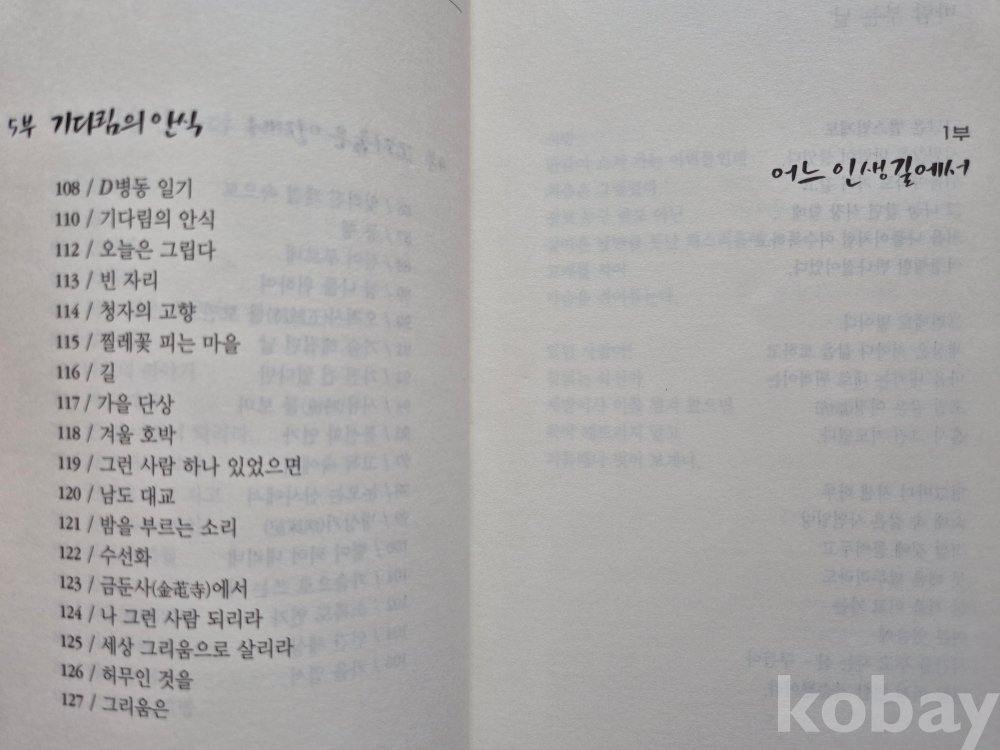 5부 기다림의 안식
108 / D병동 일기
110 / 기다림의 안식
112 / 오늘은 그립다
113 / 빈 자리
114 / 청자의 고향
115 / 찔레꽃 피는 마을
116 / 길
117 / 가을 단상
118 / 겨울 호박
119 / 그런 사람 하나 있었으면
120 / 남도 대교
121 / 밤을 부르는 소리
122 / 수선화
123 / 금둔사(金芚寺)에서
124 / 나 그런 사람 되리라
125 / 세상 그리움으로 살리라
126 / 허무인 것을
127 / 그리움은
1부
어느 인생길에서
kobay